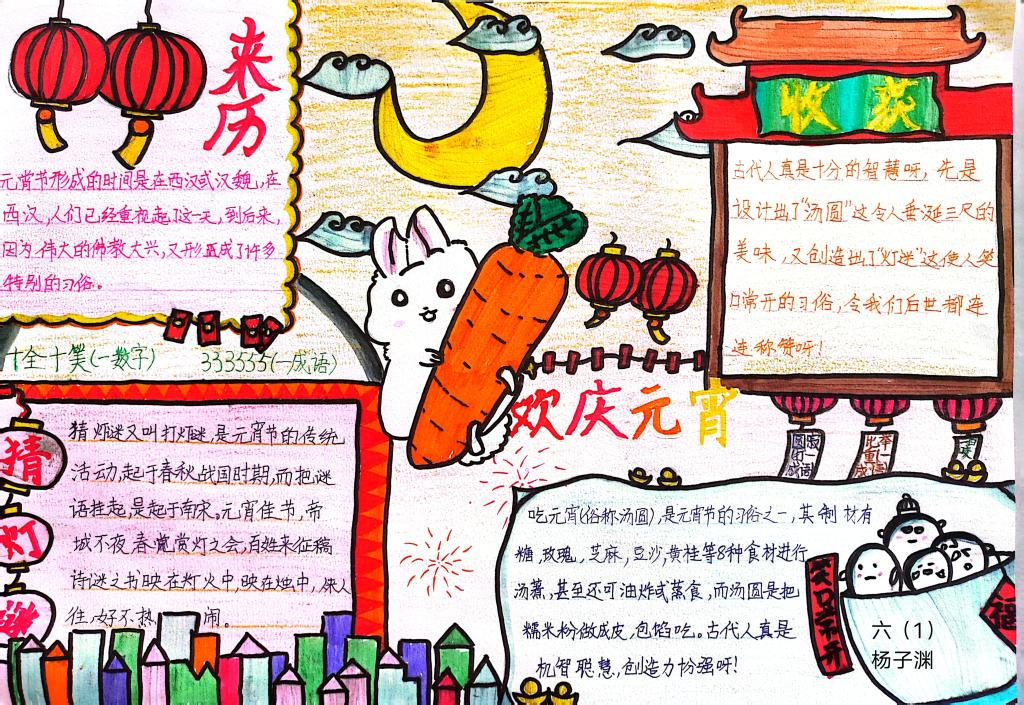 来历
元宵节形成的时间是在西汉或汉魏,在
西汉,人们已经重视起了这一天,到后来,
因为伟大的佛教大兴,又形成了许多
特别的习俗。
十全十美(一数字) 333555(一成语)
猜灯谜
猜灯谜又叫打灯谜,是元宵节的传统
活动,起于春秋战国时期,而把谜
语挂起,是起于南宋。元宵佳节,帝
城不夜,春宵赏灯之会,百姓来征稿
诗谜之书映在灯火中,映在烛中,来人
往,好不热闹。
欢庆元宵
收获
古代人真是十分的智慧呀,先是
设计出了“汤圆”这令人垂涎三尺的
美味,又创造出了“灯谜”这使人笑
口常开的习俗,令我们后世都连
连称赞呀!
吃元宵(俗称汤圆),是元宵节的习俗之一,其制材有
糖,玫瑰,芝麻,豆沙,黄桂等8种食材进行
汤煮,甚至还可油炸或蒸食,而汤圆是把
糯米粉做成皮,包馅吃。古代人真是
机智聪慧,创造力扮强呀!
笑口常开
福
六(1)
杨子渊